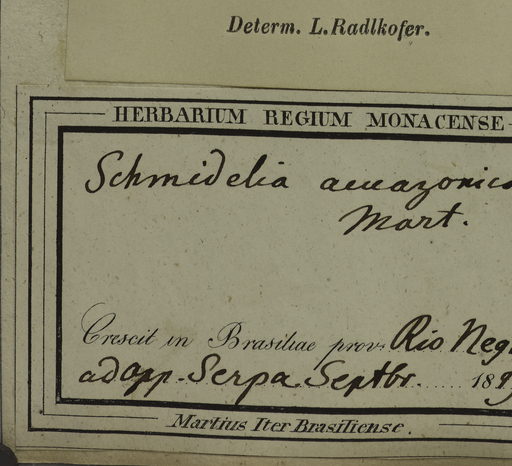 Determ. L. Radlkofer.
HERBARIUM REGIUM MONACENSE
Schmidelia amazonica
Mart.
Crescit in Brasiliae prov. Rio Neg
ad opp. Serpa. Septbr. 18
Martius Iter Brasiliense.